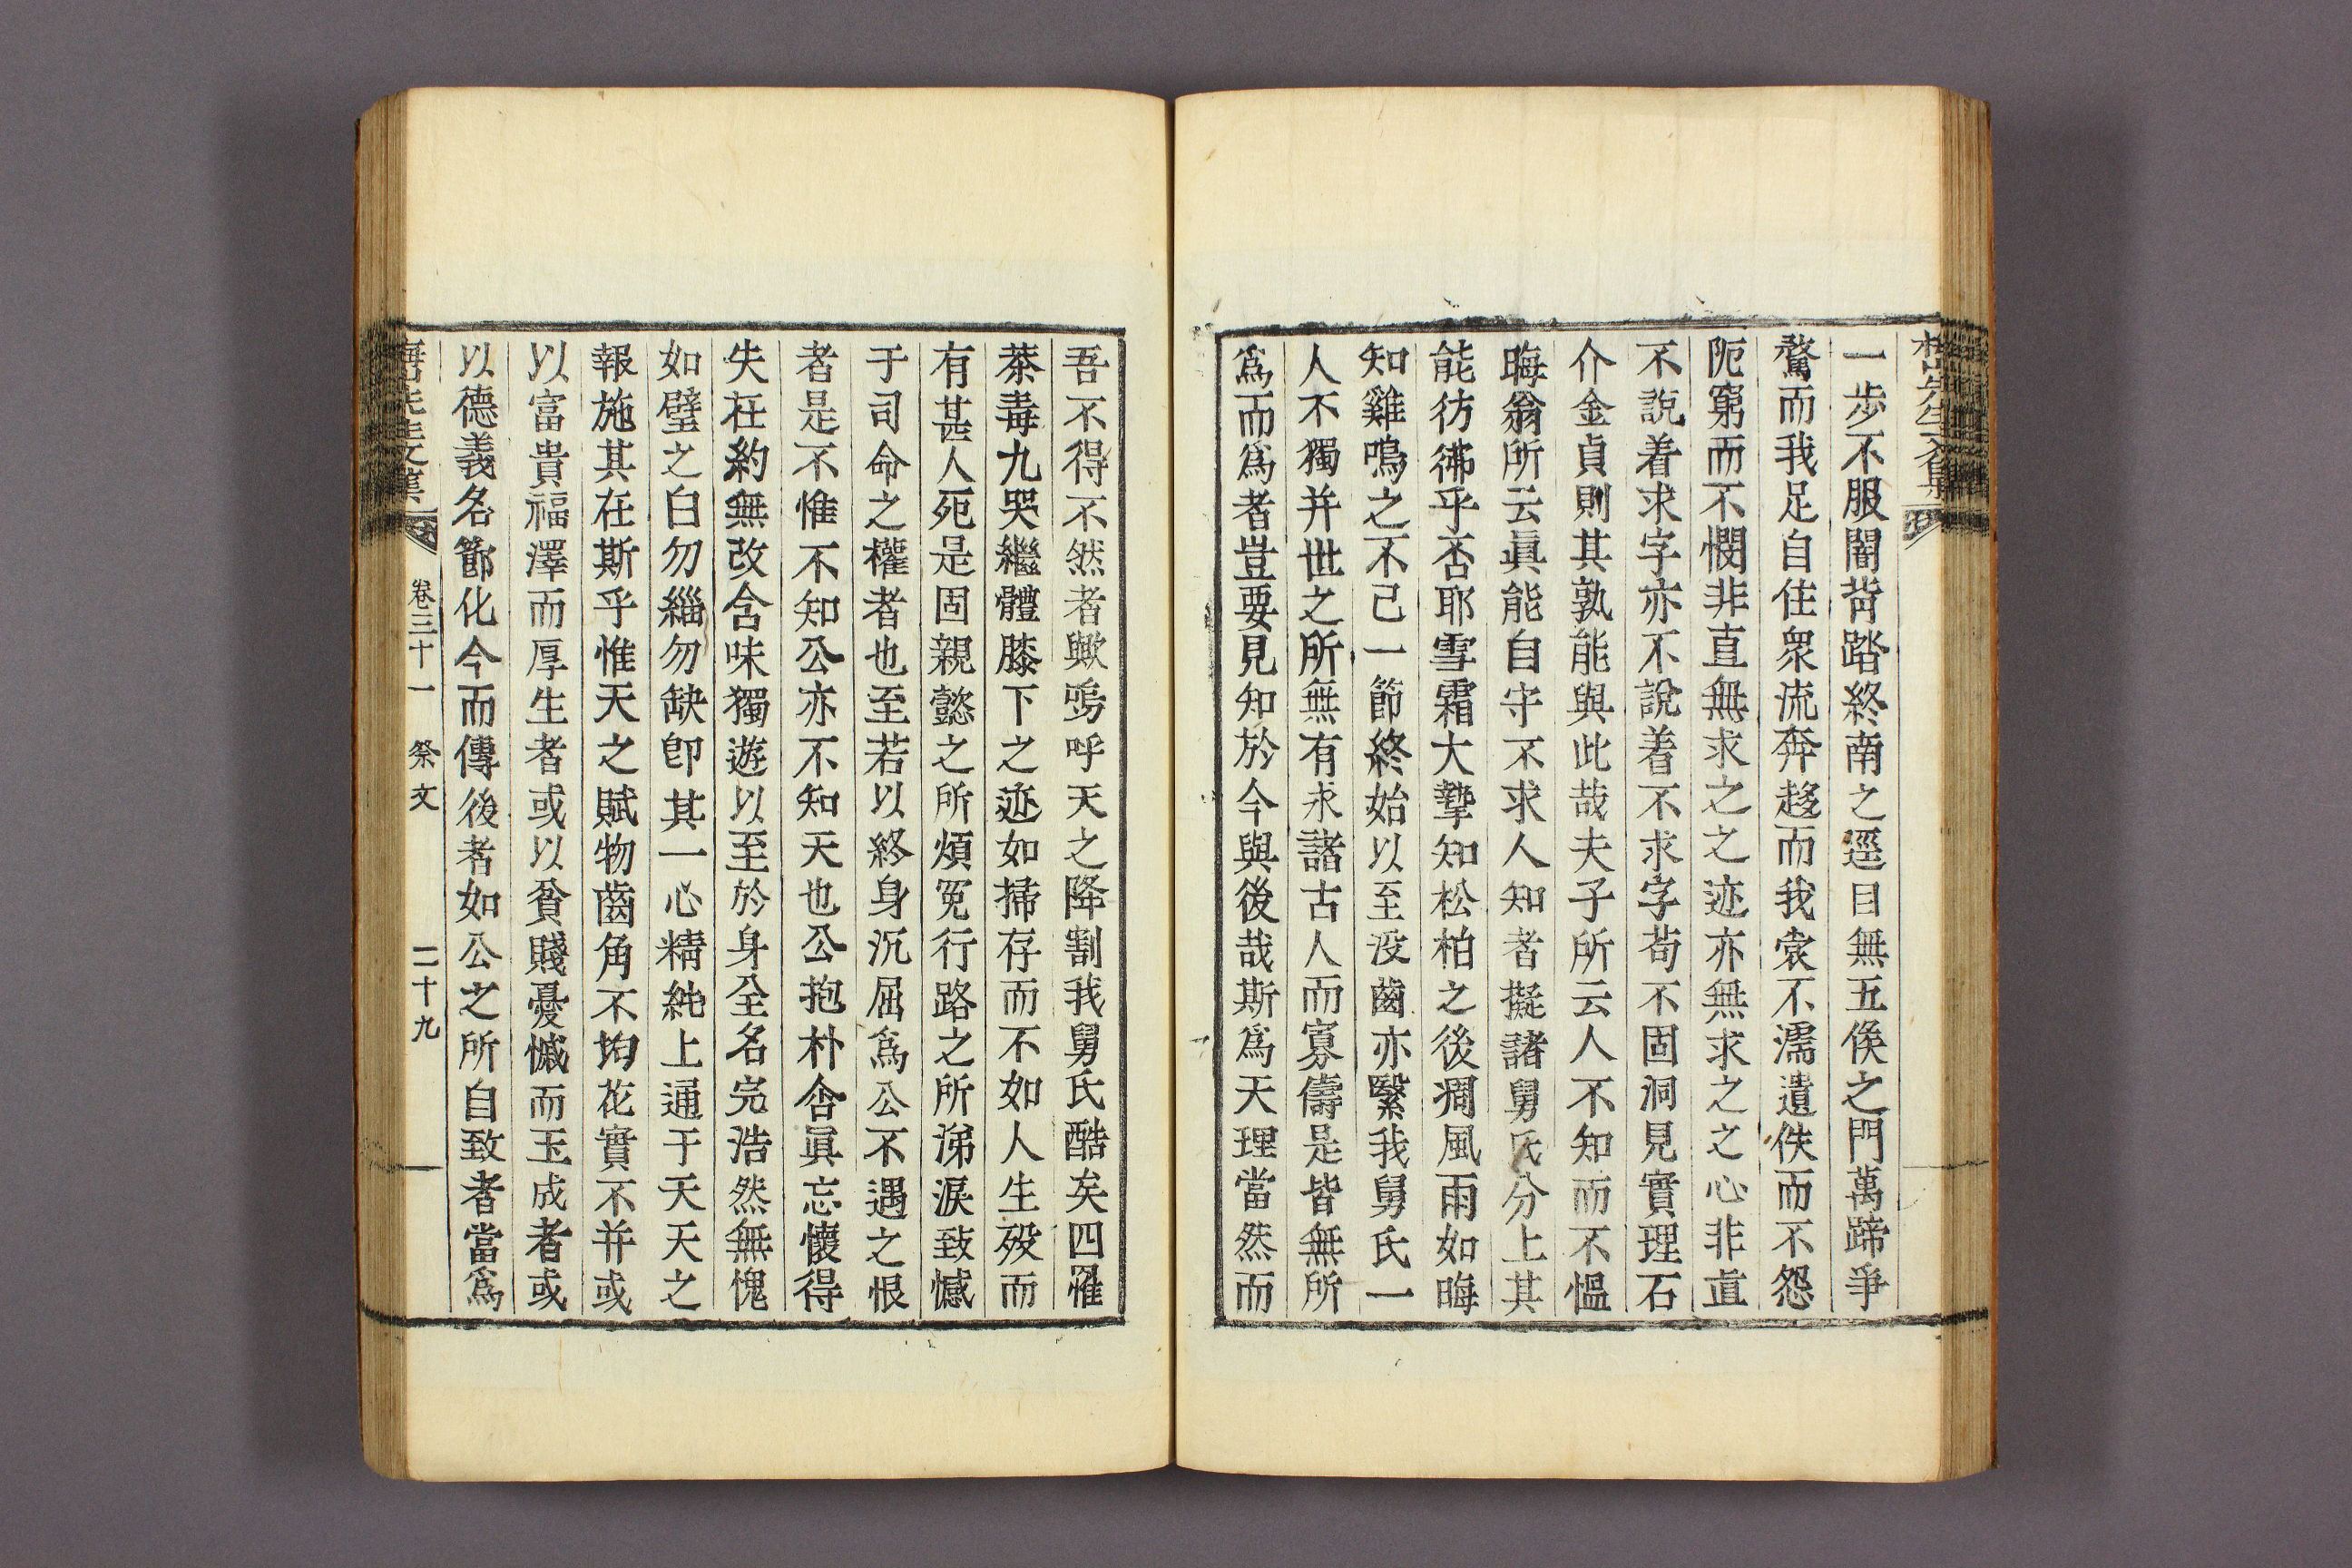 一步不服闇背踏終南之逕目無五侯之門萬蹄爭
騖而我足自住衆流奔趍而我裳不濡遺佚而不怨
阨窮而不憫非直無求之之迹亦無求之之心非直
不說着求字亦不說着不求字苟不固洞見實理石
介金貞則其孰能與此哉夫子所云人不知而不慍
晦翁所云眞能自守不求人知者擬諸舅氏分上其
能彷彿乎否耶雪霜大摯知松柏之後凋風雨如晦
知雞鳴之不已一節終始以至沒齒亦繄我舅氏一
人不獨并世之所無有求諸古人而寡儔是皆無所
爲而爲者豈要見知於今與後哉斯爲天理當然而
吾不得不然者歟嗚呼天之降割我舅氏酷矣四罹
荼毒九哭繼體膝下之迹如掃存而不如人生歿而
有甚人死是固親懿之所煩冤行路之所涕淚致憾
于司命之權者也至若以終身沉屈爲公不遇之恨
者是不惟不知公亦不知天也公抱朴含眞忘懷得
失在約無改含味獨遊以至於身全名完浩然無愧
如璧之白勿緇勿缺卽其一心精純上通于天天之
報施其在斯乎惟天之賦物齒角不均花實不并或
以富貴福澤而厚生者或以貧賤憂慽而玉成者或
以德義名節化今而傳後者如公之所自致者當爲
先生文集 卷三十一 祭文 二十九